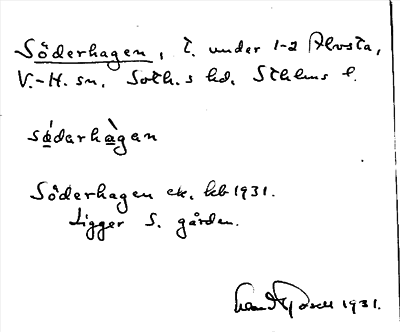 Söderhagen, t. under 1-2 Ålvsta,
V.-H. sn. Soth.s hd. Sthlms l.
södərhàgan
Söderhagen ek. kb 1931.
Ligger S. gården.
1931.